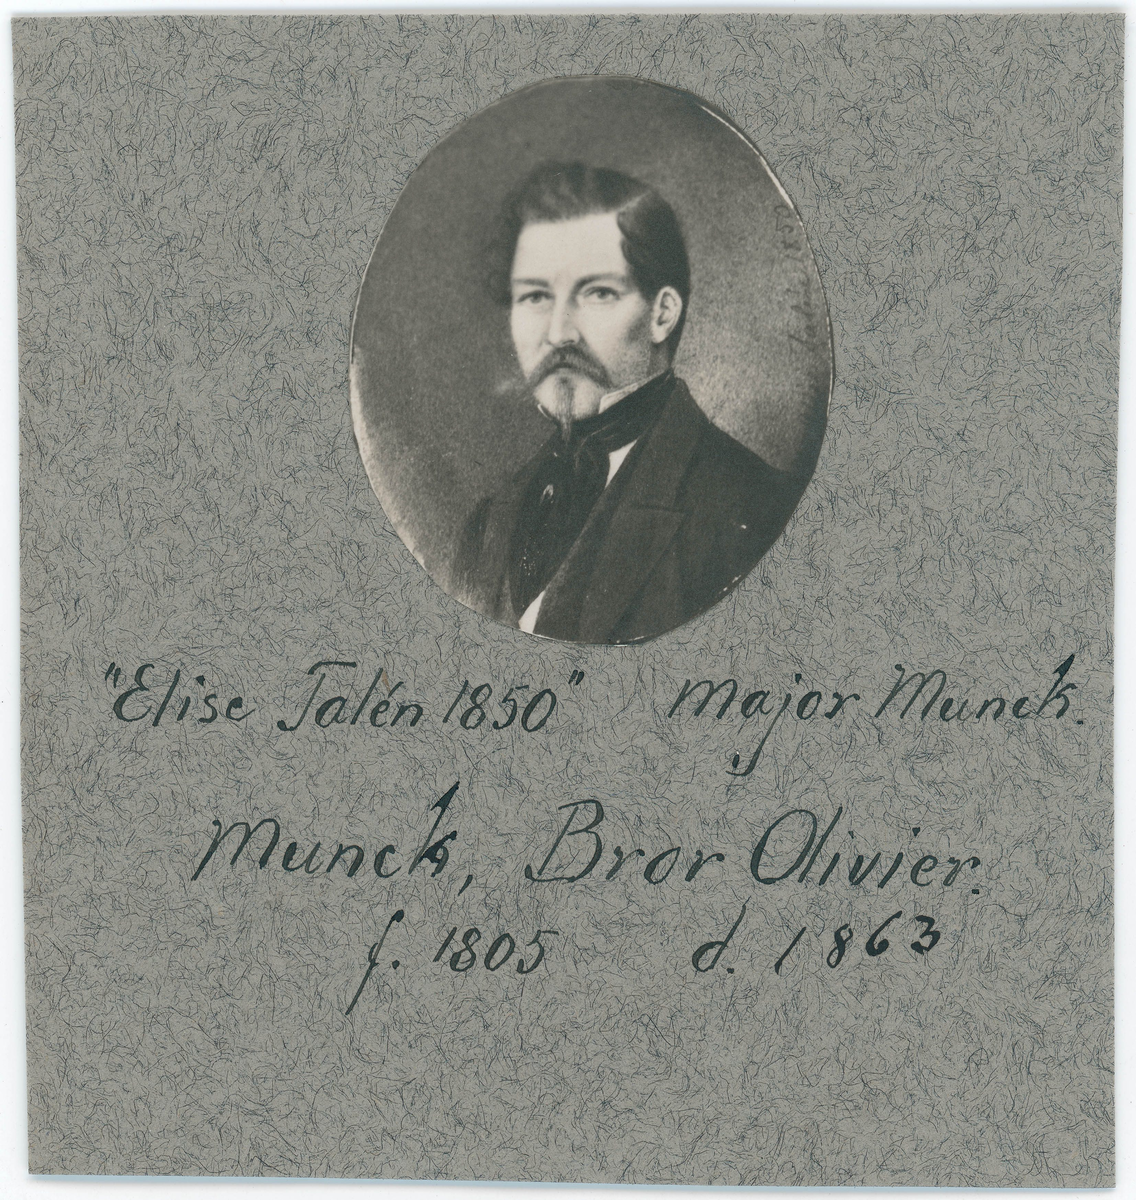 "Elise Talén 1850" Major Munck.
Munck, Bror Olivier.
f. 1805 d. 1863